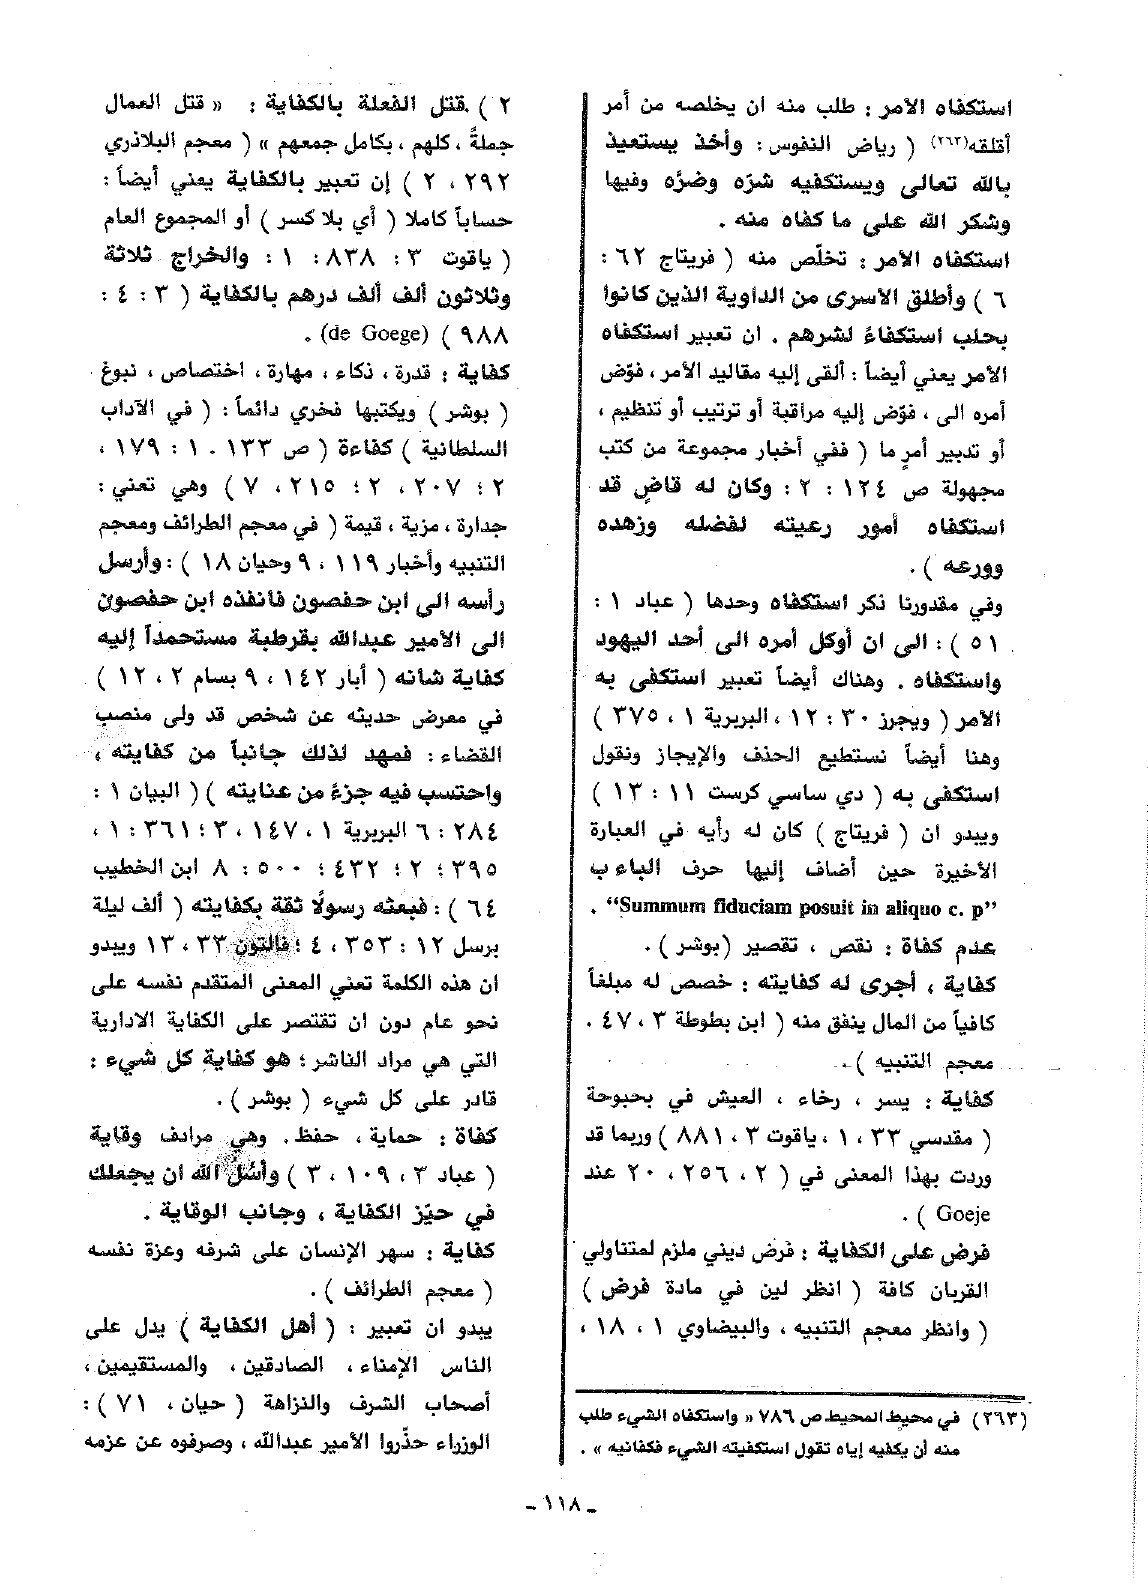 استكفاه الأمر : طلب منه ان يخلصه من أمر
أقلقه(٢٦٣) ( رياض النفوس : وأخذ يستعيذ
بالله تعالى ويستكفيه شرّه وضرّه وفيها
وشكر الله على ما كفاه منه .
استكفاه الأمر : تخلّص منه ( فريتاج ٦٢ :
٦ ) وأطلق الأسرى من الداوية الذين كانوا
بحلب استكفاءً لشرهم . ان تعبير استكفاه
الأمر يعني أيضاً : ألقى إليه مقاليد الأمر ، فوّض
أمره الى ، فوّض إليه مراقبة أو ترتيب أو تنظيم ،
أو تدبير أمرٍ ما ( ففي أخبار مجموعة من كتب
مجهولة ص ١٢٤ : ٢ : وكان له قاضٍ قد
استكفاه أمور رعيته لفضله وزهده
وورعه ) .
وفي مقدورنا ذكر استكفاه وحدها ( عباد ١ :
٥١ ) : الى ان أوكل أمره الى أحد اليهود
واستكفاه . وهناك أيضاً تعبير استكفى به
الأمر ( ويجرز ٣٠ : ١٢ ، البربرية ١ ، ٣٧٥ )
وهنا أيضاً نستطيع الحذف والإيجاز ونقول
استكفى به ( دي ساسي كرست ١١ : ١٣ )
ويبدو ان ( فريتاج ) كان له رأيه في العبارة
الأخيرة حين أضاف إليها حرف الباء ب
"Summum fiduciam posuit in aliquo c. p" .
عدم كفاة : نقص ، تقصير (بوشر ) .
كفاية ، أجرى له كفايته : خصص له مبلغاً
كافياً من المال ينفق منه ( ابن بطوطة ٣ ، ٤٧ .
معجم التنبيه ) .
كفاية : يسر ، رخاء ، العيش في بحبوحة
( مقدسي ٣٣ ، ١ ، ياقوت ٣ ، ٨٨١ ) وربما قد
وردت بهذا المعنى في ( ٢ ، ٢٥٦ ، ٢٠ عند
Goeje ) .
فرض على الكفاية : فرض ديني ملزم لمتناولي
القربان كافة ( انظر لين في مادة فرض )
( وانظر معجم التنبيه ، والبيضاوي ١ ، ١٨ ،
(٢٦٣) في محيط المحيط ص ٧٨٦ « واستكفاه الشيء طلب
منه أن يكفيه إياه تقول استكفيته الشيء فكفانيه » .
٢ ) . قتل الفعلة بالكفاية : « قتل العمال
جملةً ، كلهم ، بكامل جمعهم » ( معجم البلاذري
٢٩٢ ، ٢ ) إن تعبير بالكفاية يعني أيضاً :
حساباً كاملا ( أي بلا كسر ) أو المجموع العام
( ياقوت ٣ : ٨٣٨ : ١ : والخراج ثلاثة
وثلاثون ألف ألف درهم بالكفاية ( ٣ : ٤ :
٩٨٨ ) (de Goege) .
كفاية : قدرة ، ذكاء ، مهارة ، اختصاص ، نبوغ
( بوشر ) ويكتبها فخري دائماً : ( في الآداب
السلطانية ) كفاءة ( ص ١٣٣ . ١ : ١٧٩ ،
٢ ؛ ٢٠٧ ، ٢ ؛ ٢١٥ ، ٧ ) وهي تعني :
جدارة ، مزية ، قيمة ( في معجم الطرائف ومعجم
التنبيه وأخبار ١١٩ ، ٩ وحيان ١٨ ) : وأرسل
رأسه الى ابن حفصون فانفذه ابن حفصون
الى الأمير عبدالله بقرطبة مستحمداً إليه
كفاية شانه ( أبار ١٤٢ ، ٩ بسام ٢ ، ١٢ )
في معرض حديثه عن شخص قد ولى منصب
القضاء : فمهد لذلك جانباً من كفايته ،
واحتسب فيه جزءً من عنايته ) ( البيان ١ :
٢٨٤ : ٦ البربرية ١ ، ١٤٧ ، ٣ ؛ ٣٦١ : ١ ،
٣٩٥ ؛ ٢ ؛ ٤٣٢ ؛ ٥٠٠ : ٨ ابن الخطيب
٦٤ ) : فبعثه رسولًا ثقة بكفايته ( ألف ليلة
برسل ١٢ : ٣٥٣ ، ٤ ؛ فالتون ٣٣ ، ١٣ ويبدو
ان هذه الكلمة تعني المعنى المتقدم نفسه على
نحو عام دون ان تقتصر على الكفاية الادارية
التي هي مراد الناشر ؛ هو كفاية كل شيء :
قادر على كل شيء ( بوشر ) .
كفاة : حماية ، حفظ . وهي مرادف وقاية
( عباد ٣ ، ١٠٩ ، ٣ ) وأسَلُ الله ان يجعلك
في حيّز الكفاية ، وجانب الوقاية .
كفاية : سهر الإنسان على شرفه وعزة نفسه
( معجم الطرائف ) .
يبدو ان تعبير : ( أهل الكفاية ) يدل على
الناس الإمناء ، الصادقين ، والمستقيمين ،
أصحاب الشرف والنزاهة ( حيان ، ٧١ ) :
الوزراء حذّروا الأمير عبدالله ، وصرفوه عن عزمه
ـ ١١٨ ـ